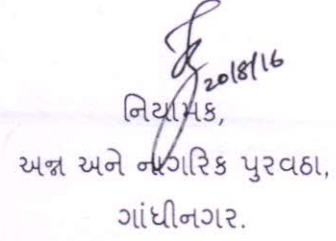 20/8/16
નિયામક,
અન્ન અને નાગરિક પુરવઠા,
ગાંધીનગર.